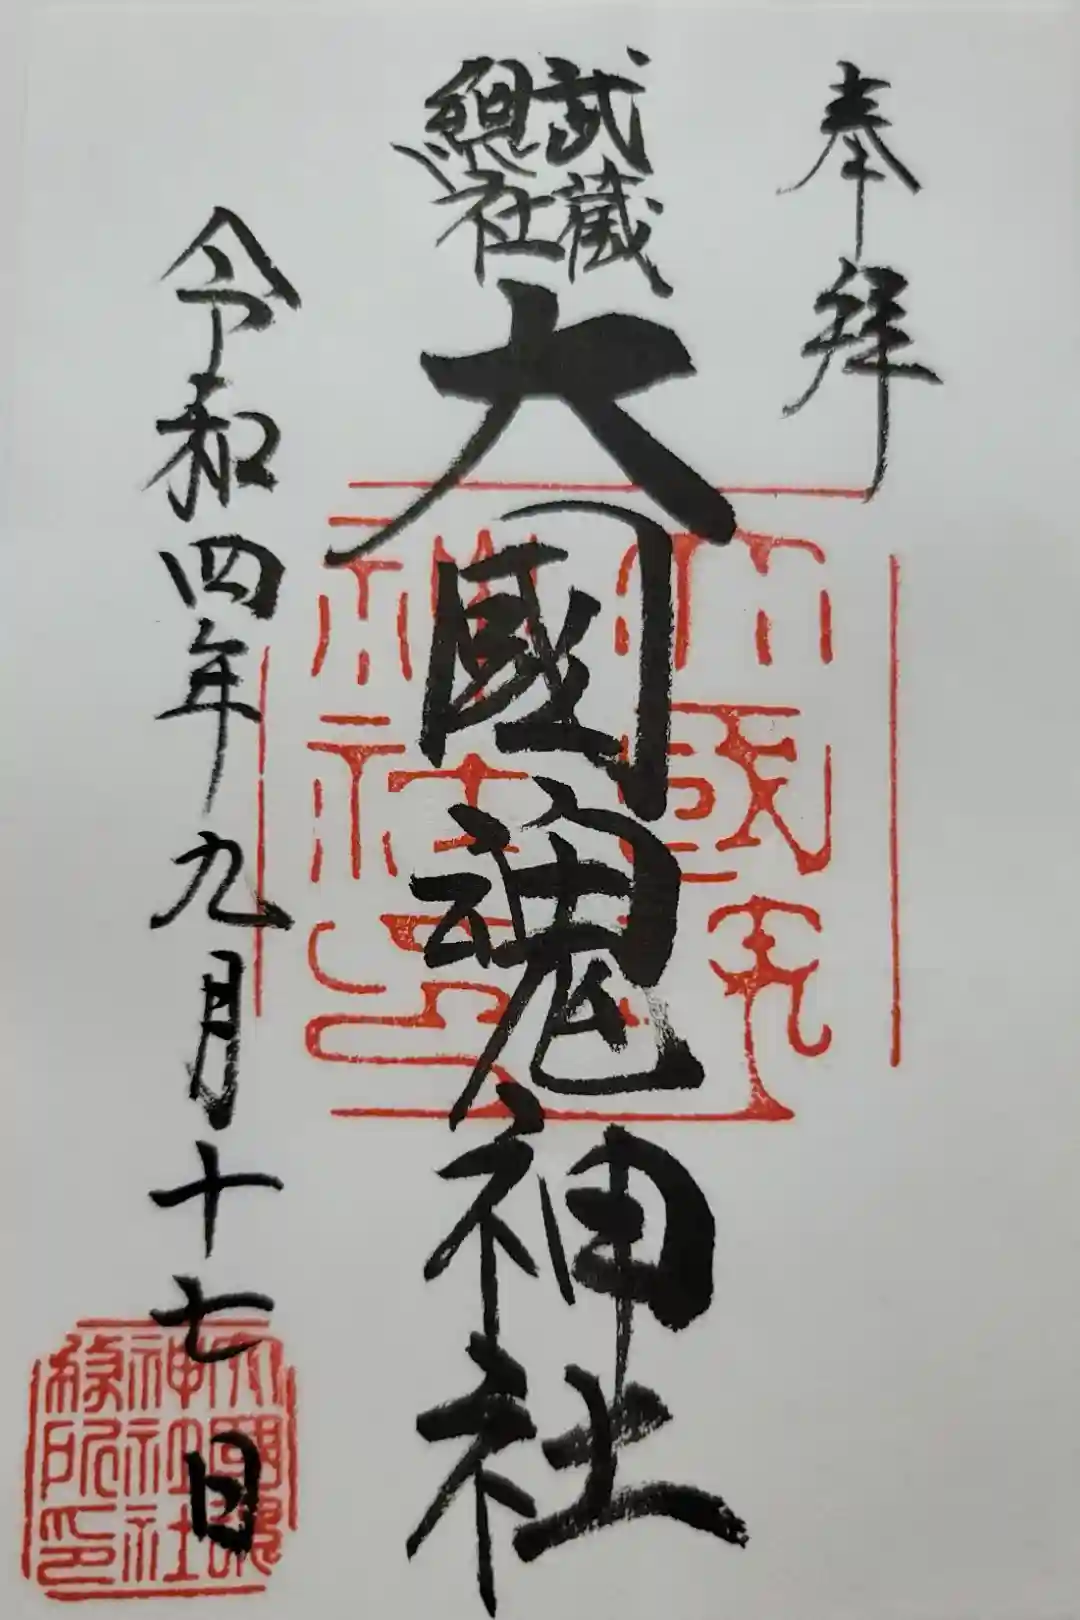 奉拝
武蔵
總社
大國魂神社
令和四年九月十七日
大國魂
神社之印
大國魂
神社社
務所印